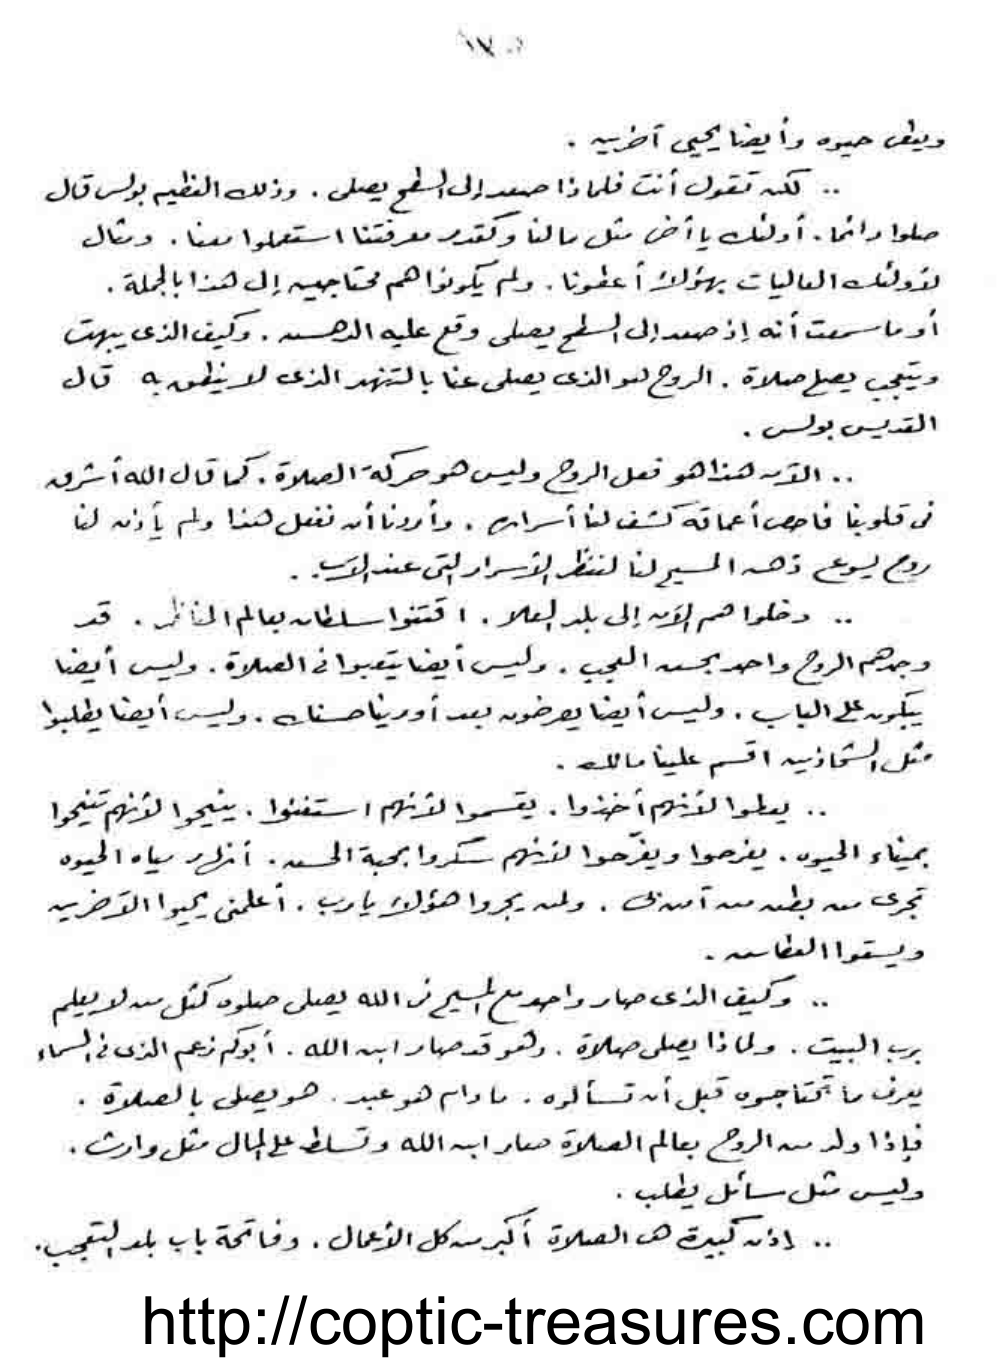 ويعطى حيوه وأيضا يحيى آخرين .
.. لكن تقول أنت فلماذا صعد إلى السطح يصلى . وذلك العظيم بولس قال
صلوا دائما . أولئك يا أخى مثل مالنا وكقدر معرفتنا استعملوا معنا . ومثال
لأولئك العاليات بهؤلاء أعطونا . ولم يكونوا هم محتاجين إلى هذا بالجملة .
أو ما سمعت أنه إذ صعد إلى السطح يصلى وقع عليه الدهس . وكيف الذى يبهت
ويتعجب يصلى صلاة . الروح هو الذى يصلى عنا بالتنهد الذى لا ينطق به قال
القديس بولس .
.. الآن هذا هو فعل الروح وليس هو حركة الصلاة . كما قال الله أشرق
فى قلوبنا فاحص أعماقه كشف لنا أسراره . وأردنا أن نفعل هذا ولم يأذن لنا
روح يسوع ذهن المسيح لنا لننظر الأسرار التى عند الآب .
.. دخلوا هم الآن إلى بلد العلا . اقتنوا سلطان بعالم المناظر . قد
وجدهم الروح واحد بحسن العجب . وليس أيضا يتعبوا فى الصلاة . وليس أيضا
يبكون على الباب . وليس أيضا يعرضون بعد أورينا حسنك . وليس أيضا يطلبوا
مثل الشحاذين اقسم علينا مالك .
.. يعطوا لأنهم أخذوا . يقسموا لأنهم استغنوا . ينيحوا لأنهم تنيحوا
بميناء الحيوه . يفرحوا ويفرّحوا لأنهم سكروا بمحبة الحسن . أنهار مياه الحيوه
تجرى من بطن من آمن بى . ولمن يجروا هؤلاء يارب . أعلمنى يحيوا الآخرين
ويسقوا العطاس .
.. وكيف الذى صار واحد مع المسيح فى الله يصلى صلوه كمثل من لا يعلم
برب البيت . ولماذا يصلى صلاة . وهو قد صار ابن الله . أبوكم زعم الذى فى السماء
يعرف ما تحتاجوه قبل أن تسألوه . مادام هو عبد . هو يصلى بالصلاة .
فإذا ولد من الروح بعالم الصلاة صار ابن الله وتسلط على المال مثل وارث .
وليس مثل سائل يطلب .
.. إذن كبيرة هى الصلاة أكبر من كل الأعمال . وفاتحة باب بلد التعجب .
http://coptic-treasures.com